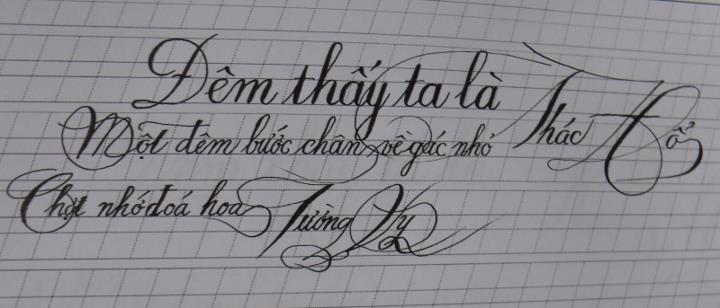 Đêm thấy ta là Thác Đổ
Một đêm bước chân về gác nhỏ
Chợt nhớ đoá hoa Tường Vy